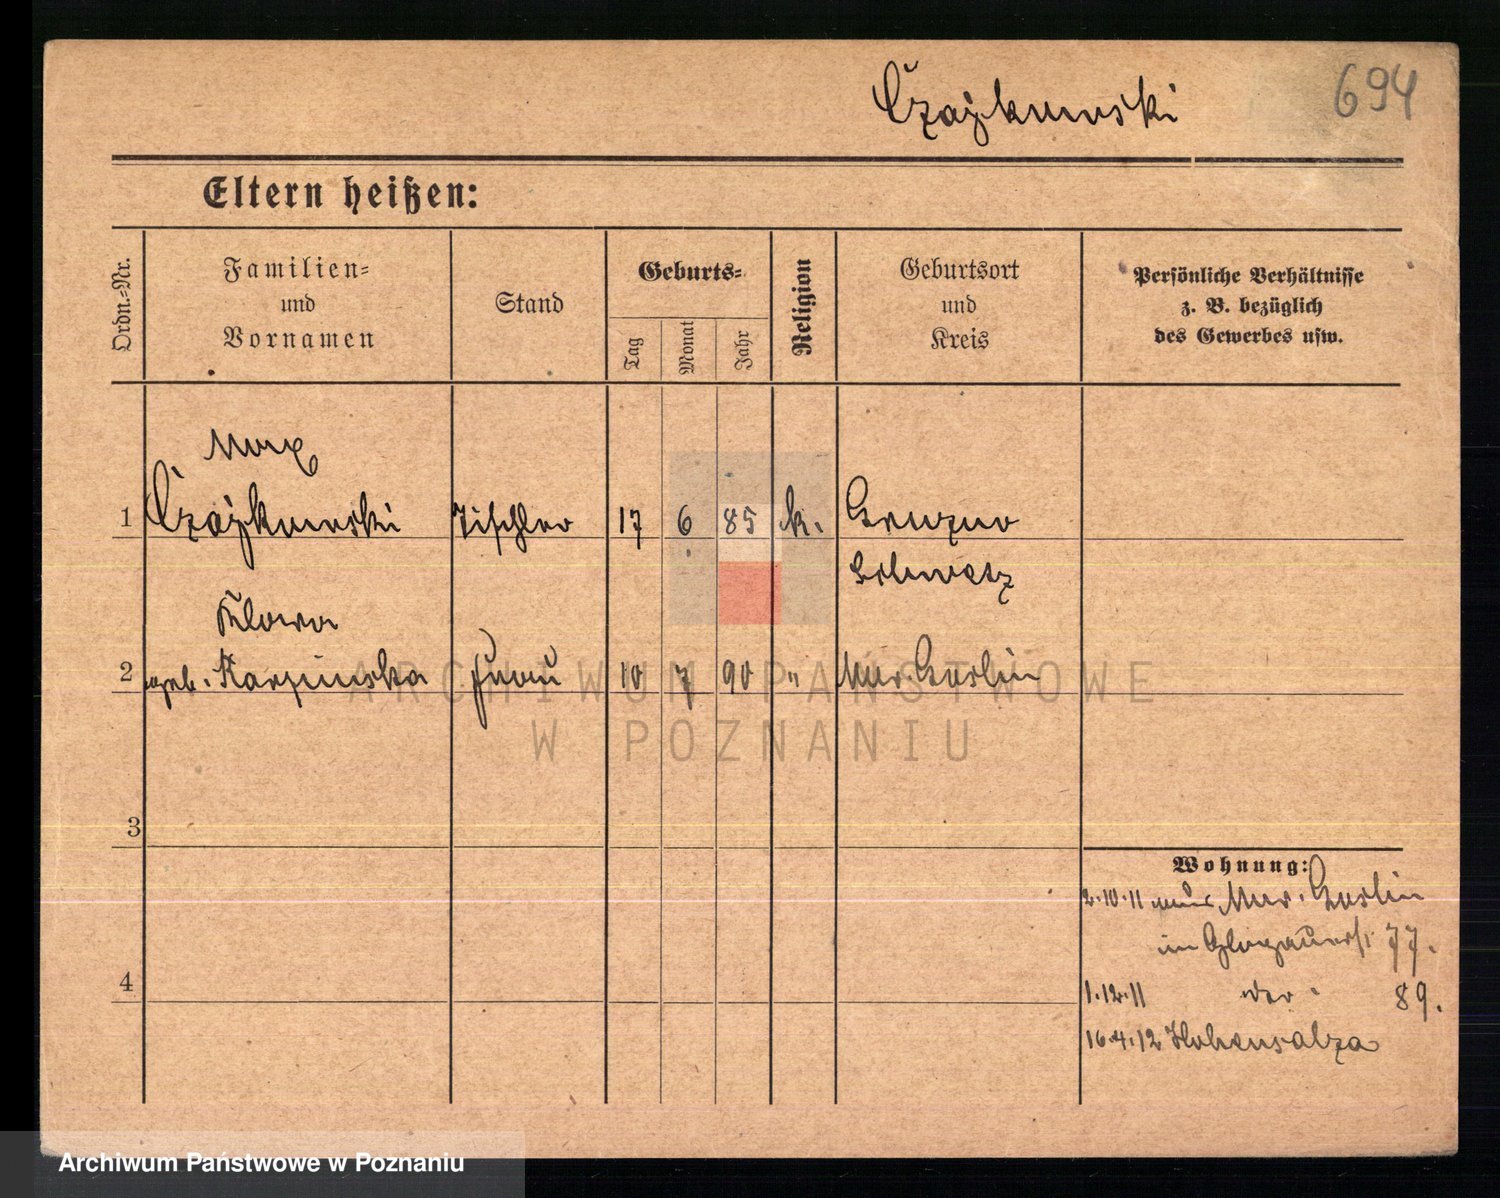 Czajkowski
694
Eltern heißen:
Ordn.-Nr.
Familien-
und
Vornamen
Stand
Geburts-
Tag
Monat
Jahr
Religion
Geburtsort
und
Kreis
Persönliche Verhältnisse
z. B. bezüglich
des Gewerbes usw.
Max
1 Czajkowski Tischler 17 6 85 k. Gruzno
Schwetz
Klara
2 geb. Karpinska Frau 10 7 90 " Mur. Goslin
3
Wohnung:
2.10.11 aus Mur. Goslin
in Glogauerst 77.
4
1.12.11 89.
16.4.12 Hohensalza
ARCHIWUM PAŃSTWOWE
W POZNANIU
Archiwum Państwowe w Poznaniu